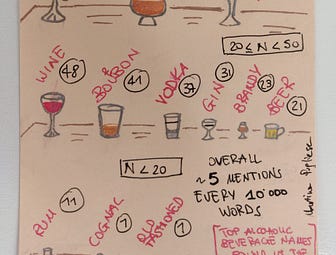 20 ≤ N < 50
WINE 48
BOURBON 41
VODKA 37
GIN 31
BRANDY 23
BEER 21
N < 20
OVERALL
~ 5 MENTIONS
EVERY 10'000
WORDS
RUM 11
COGNAC 1
OLD FASHIONED 1
TOP ALCOHOLIC
BEVERAGE NAMES
FOUND IN THE